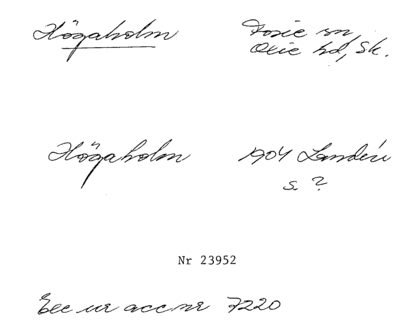 Högaholm Fosie sn,
Oxie hd, Sk.
Högaholm 1904 Landén
s. ?
Nr 23952
Exc ur acc nr 7220